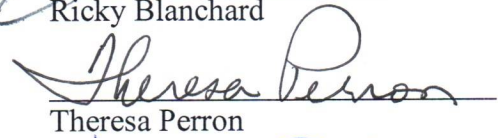 Ricky Blanchard
Theresa Perron
Theresa Perron